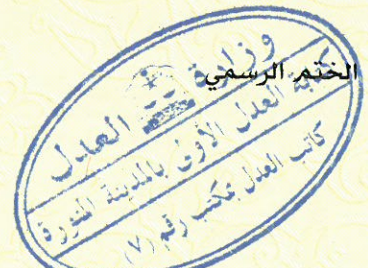 الختم الرسمي
وزارة العدل
كتابة العدل الأولى بالمدينة المنورة
كاتب العدل بمكتب رقم (٧)